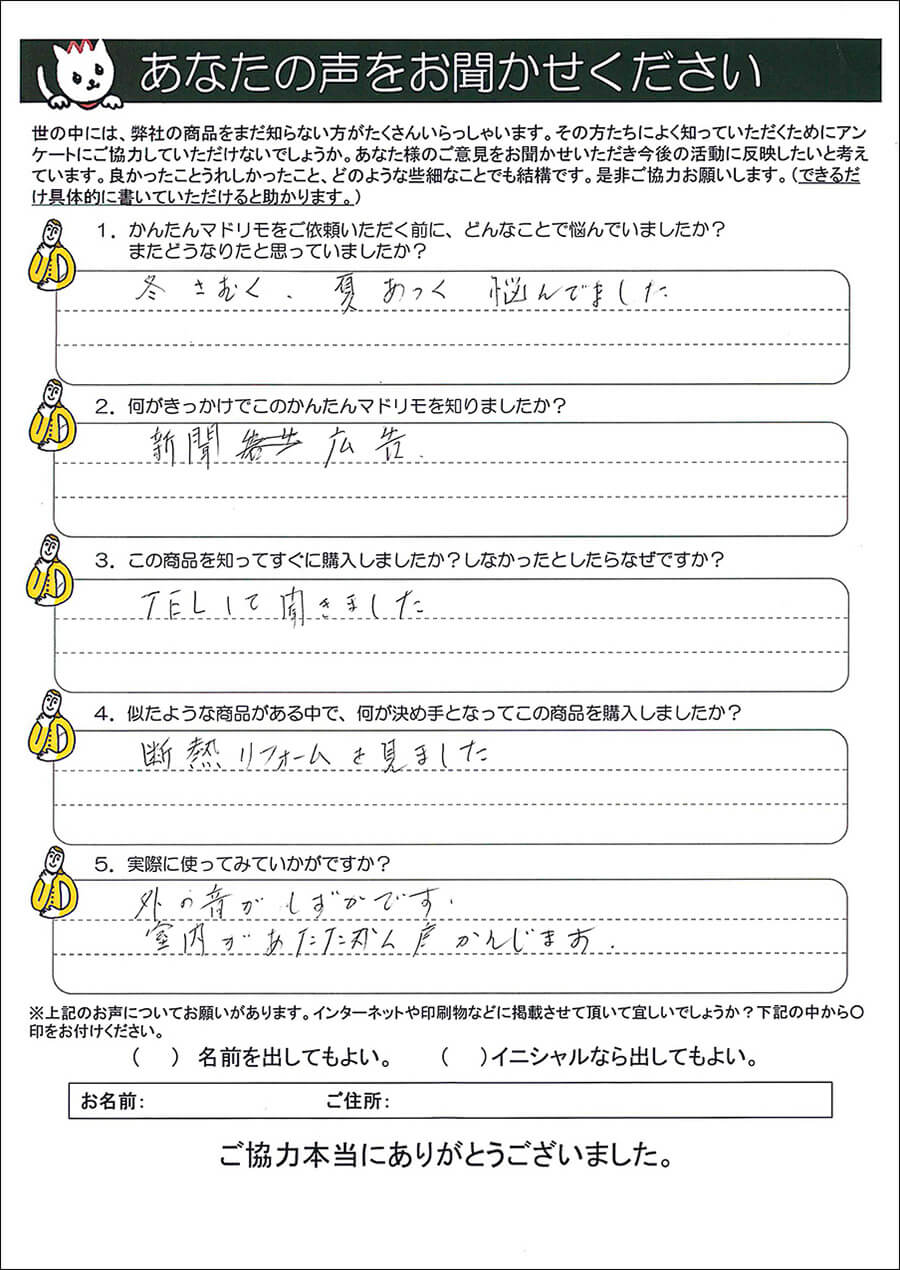 あなたの声をお聞かせください
世の中には、弊社の商品をまだ知らない方がたくさんいらっしゃいます。その方たちによく知っていただくためにアン
ケートにご協力していただけないでしょうか。あなた様のご意見をお聞かせいただき今後の活動に反映したいと考え
ています。良かったことうれしかったこと、どのような些細なことでも結構です。是非ご協力お願いします。（できるだ
け具体的に書いていただけると助かります。）
1．かんたんマドリモをご依頼いただく前に、どんなことで悩んでいましたか？
またどうなりたと思っていましたか？
冬さむく、夏あつく 悩んでました
2．何がきっかけでこのかんたんマドリモを知りましたか？
新聞 広告.
3．この商品を知ってすぐに購入しましたか？しなかったとしたらなぜですか？
TELして聞きました
4．似たような商品がある中で、何が決め手となってこの商品を購入しましたか？
断熱リフォームを見ました
5．実際に使ってみていかがですか？
外の音がしずかです.
室内があたたかく かんじます.
※上記のお声についてお願いがあります。インターネットや印刷物などに掲載させて頂いて宜しいでしょうか？下記の中から〇
印をお付けください。
（　）名前を出してもよい。　（　）イニシャルなら出してもよい。
お名前：　ご住所：
ご協力本当にありがとうございました。